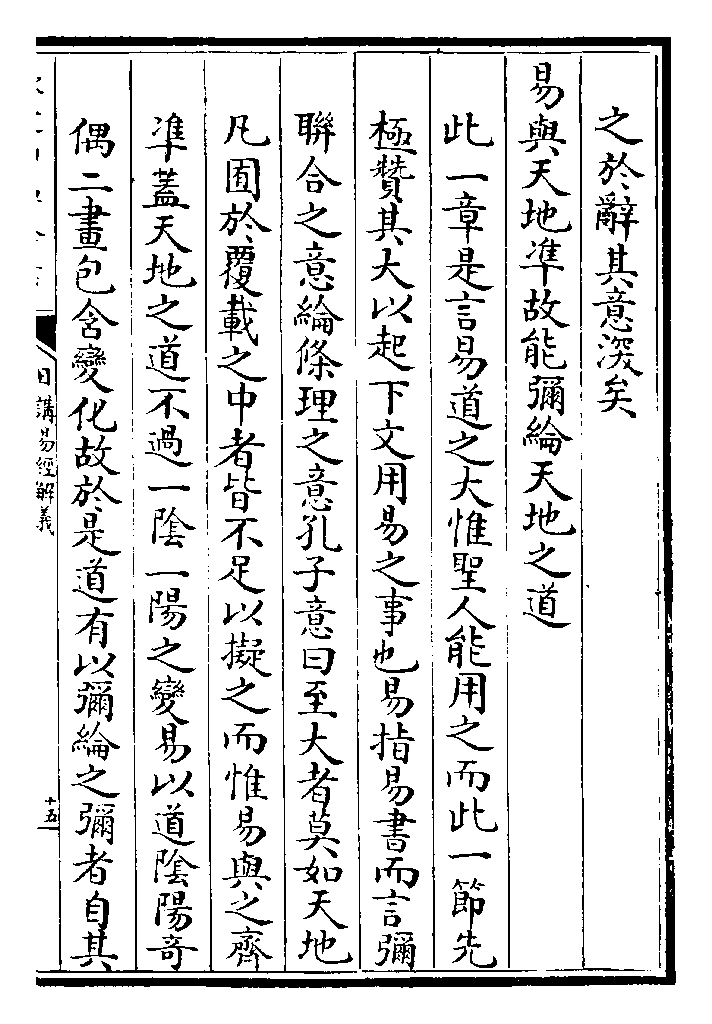 之於辭其意深矣
易與天地準故能彌綸天地之道
此一章是言易道之大惟聖人能用之而此一節先
極贊其大以起下文用易之事也易指易書而言彌
聯合之意綸條理之意孔子意曰至大者莫如天地
凡囿於覆載之中者皆不足以擬之而惟易與之齊
準蓋天地之道不過一陰一陽之變易以道陰陽奇
偶二畫包含變化故於是道有以彌綸之彌者自其
日講易經解義
十五